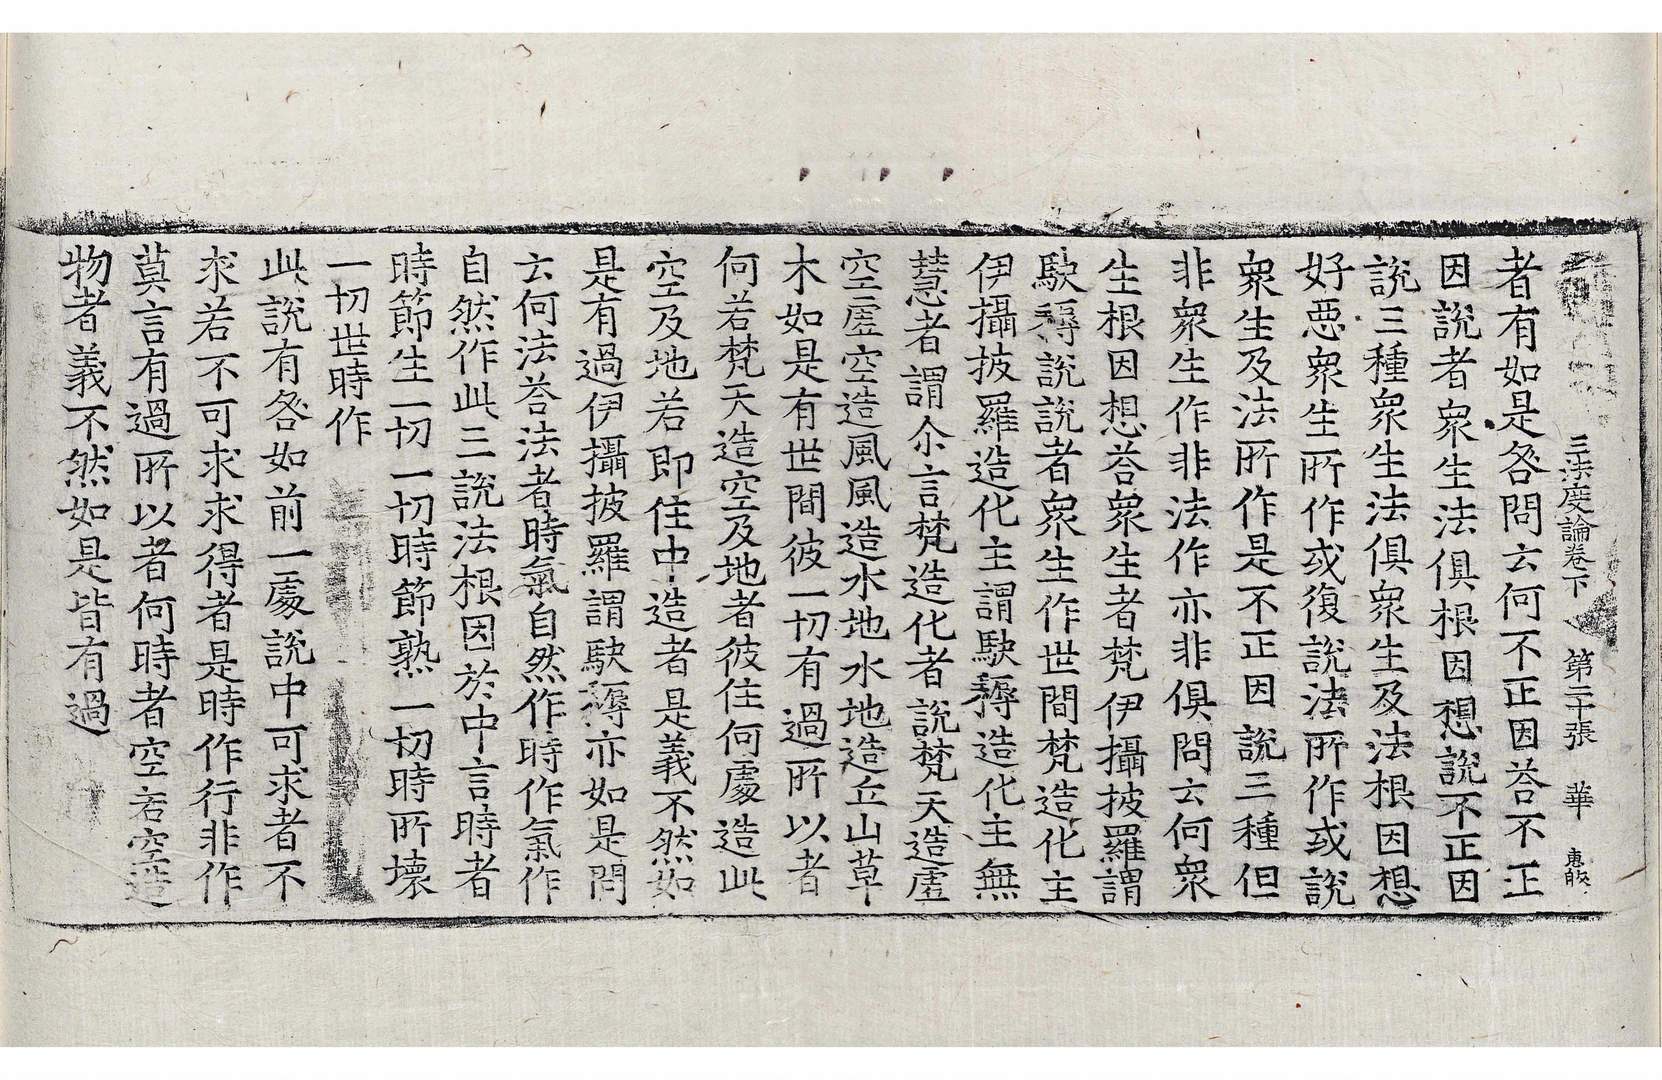 三法度論卷下 第二十張 華
者有如是咎問云何不正因荅不正
因說者衆生法俱根因想說不正因
說三種衆生法俱衆生及法根因想
好惡衆生所作或復說法所作或說
衆生及法所作是不正因說三種但
非衆生作非法作亦非俱問云何衆
生根因想荅衆生者梵伊攝披羅謂
駚說說者衆生作世間梵造化主
伊攝披羅造化主謂駚造化主無
慧者謂尒言梵造化者說梵天造虛
空虛空造風風造水地水地造丘山草
木如是有世間彼一切有過所以者
何若梵天造空及地者彼住何處造此
空及地若即住中造者是義不然如
是有過伊攝披羅謂駚亦如是問
云何法荅法者時氣自然作時作氣作
自然作此三說法根因於中言時者
時節生一切一切時節熟一切時所壞
一切世時作
此說有咎如前一處說中可求者不
求若不可求求得者是時作行非作
莫言有過所以者何時者空若空造
物者義不然如是皆有過